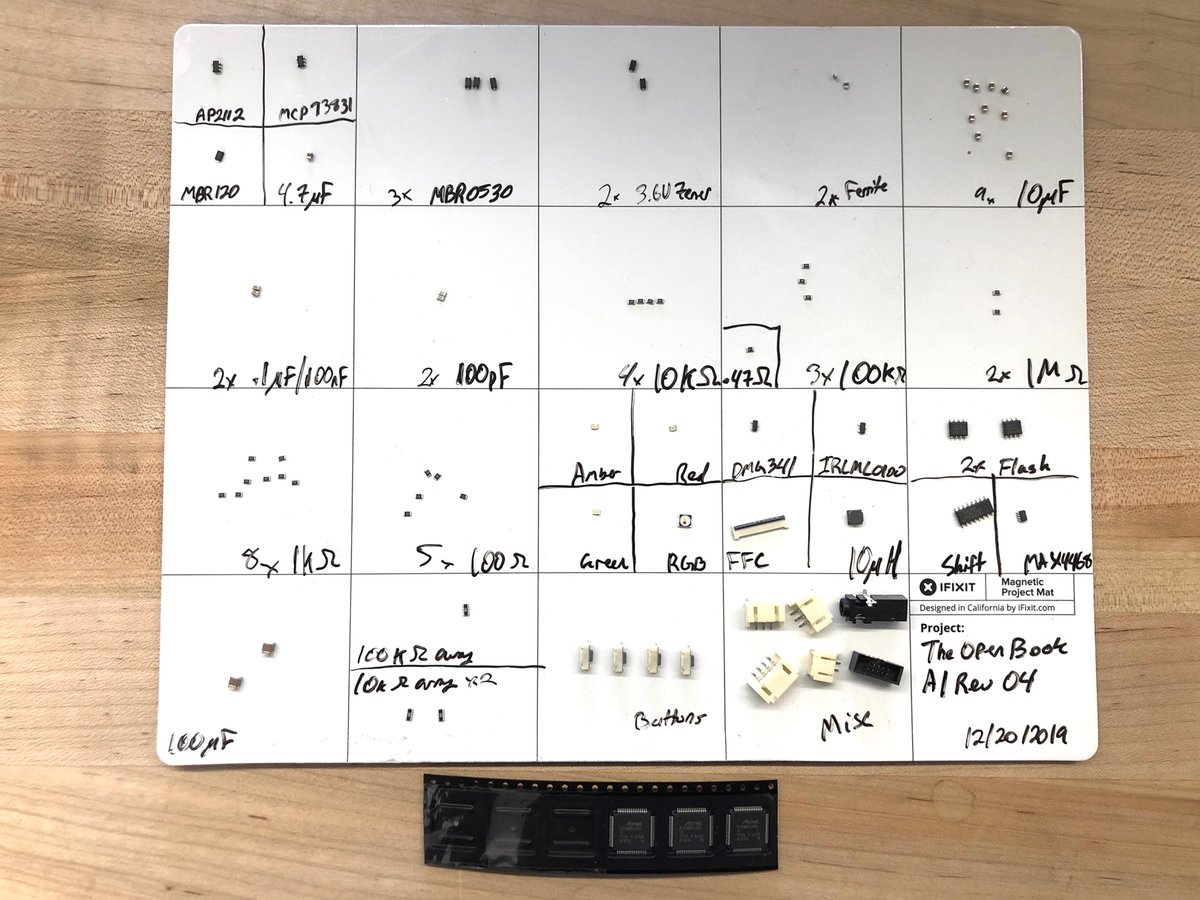 AP2112
MCP73831
MBR120
4.7µF
3x MBR0530
2x 3.6V Zener
2x Ferrite
9x 10µF
2x .1µF/100nF
2x 100pF
4x 10KΩ
.47Ω
3x 100KΩ
2x 1MΩ
8x 1KΩ
5x 100Ω
Amber
Red
Green
RGB
DMG341
IRLML0100
FFC
10µH
2x Flash
Shift
MAX4468
100µF
100KΩ array
10KΩ array x2
Buttons
Misc
IFIXIT
Magnetic
Project Mat
Designed in California by iFixit.com
Project:
The Open Book
A1 Rev 04
12/20/2019
Atmel
Atmel
Atmel